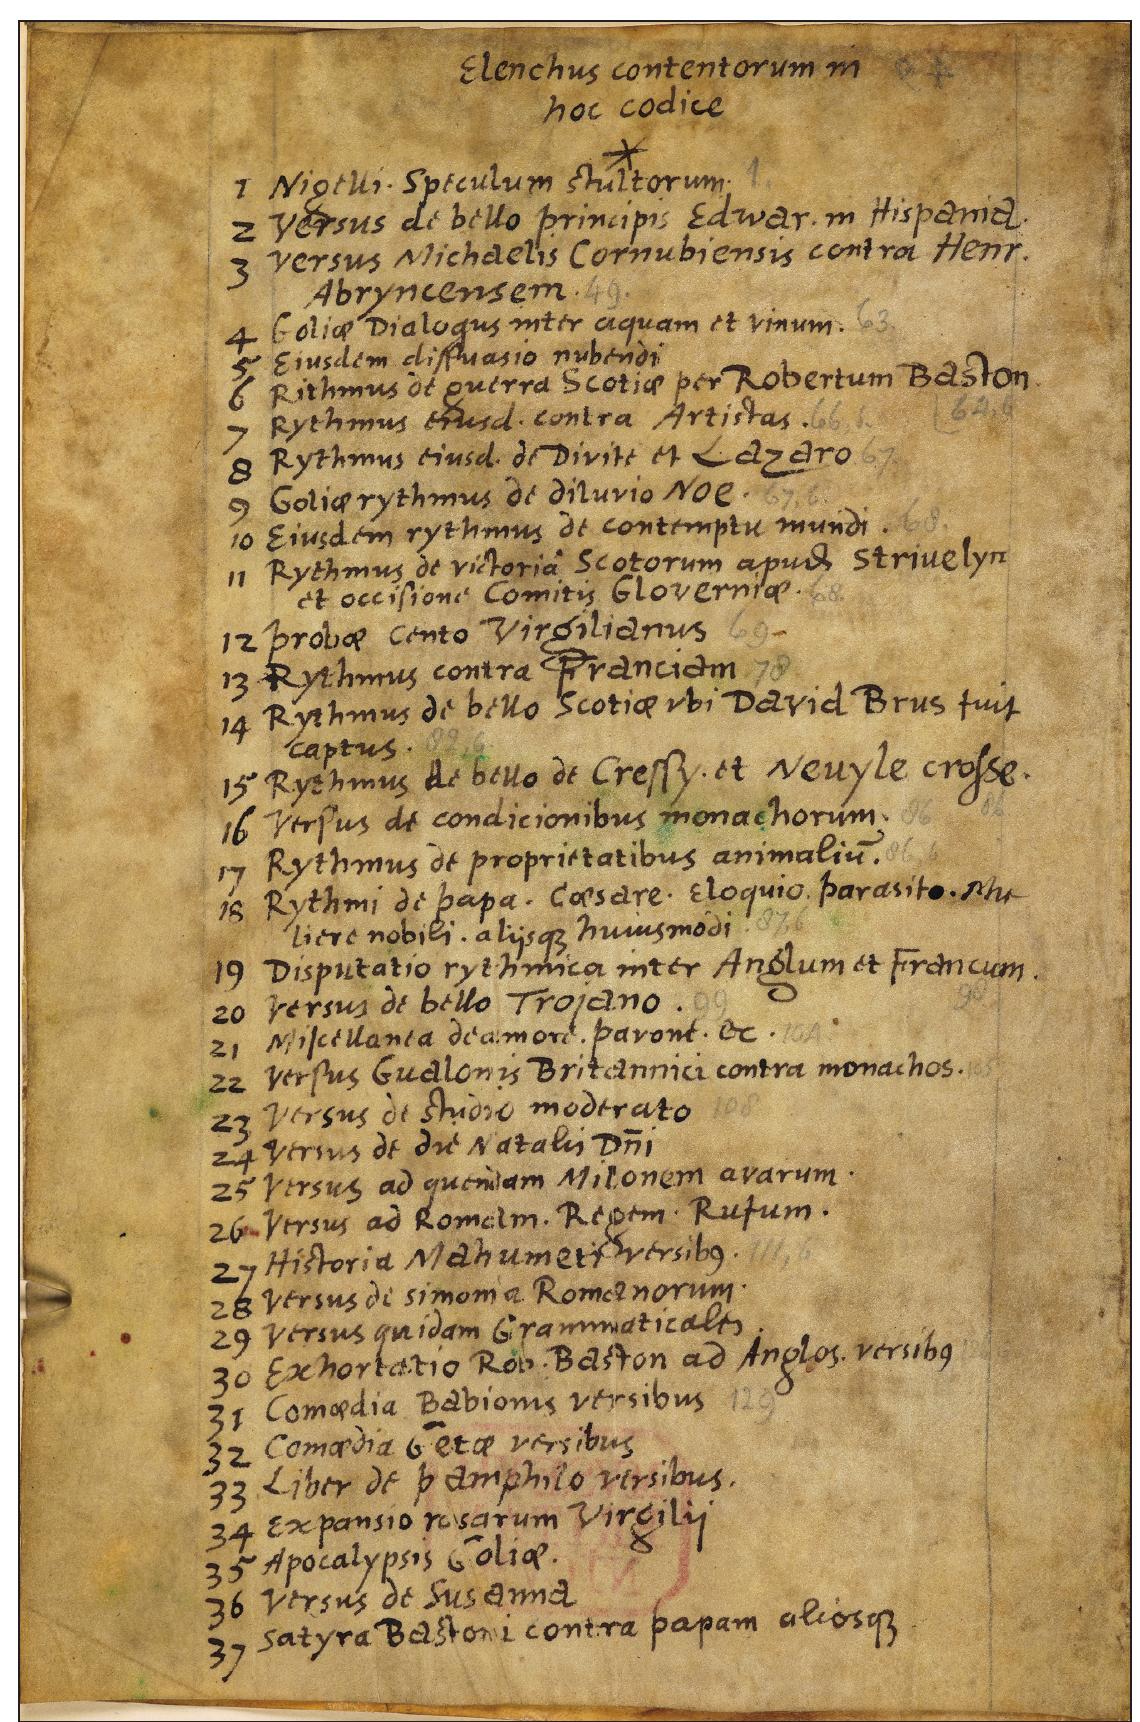 Elenchus contentorum in
hoc codice
1 Nigelli. Speculum stultorum. 1.
2 Versus de bello principis Edwar. in Hispania.
3 Versus Michaelis Cornubiensis contra Henr.
Abryncensem. 49.
4 Goliæ Dialogus inter aquam et vinum. 63.
5 Eiusdem dissuasio nubendi
6 Rithmus de guerra Scotiæ per Robertum Baston.
7 Rythmus eiusd. contra Artistas. 66,
8 Rythmus eiusd. de Divite et Lazaro 67
9 Goliæ rythmus de diluvio Noe. 67,6
10 Eiusdem rythmus de contemptu mundi. 68.
11 Rythmus de victoriâ Scotorum apud Striuelyn
et occisione Comitis Gloverniæ. 68.
12 probæ Cento Virgilianus 69
13 Rythmus contra Franciam 78
14 Rythmus de bello Scotiæ vbi David Brus fuit
captus. 82,6
15 Rythmus de bello de Cressy. et Nevyle crosse.
16 Versus de condicionibus monachorum. 86 86
17 Rythmus de proprietatibus animaliū. 86,6
18 Rythmi de papa. Cæsare. Eloquio. parasito. Mu
liere nobili. alijsqꝫ huiusmodi. 87,6
19 Disputatio rythmica inter Anglum et Francum.
20 Versus de bello Trojano. 99 98
21 Miscellanea de amore. pavone. &c. 104
22 Versus Gualonis Britannici contra monachos. 105
23 Versus de studio moderato 108
24 Versus de die Natalis Dn̄i
25 Versus ad quendam Milonem avarum.
26 Versus ad Romalm. Regem. Rufum.
27 Historia Mahumeti versibꝰ. 111,6
28 Versus de simonia Romanorum.
29 Versus quidam Grammaticales.
30 Exhortatio Rob. Baston ad Anglos. versibꝰ
31 Comœdia Babionis versibus 129
32 Comœdia Getæ versibus
33 Liber de pamphilo versibus.
34 Expansio rosarum Virgilij
35 Apocalypsis Goliæ.
36 Versus de Susanna
37 Satyra Bastoni contra papam aliosqꝫ